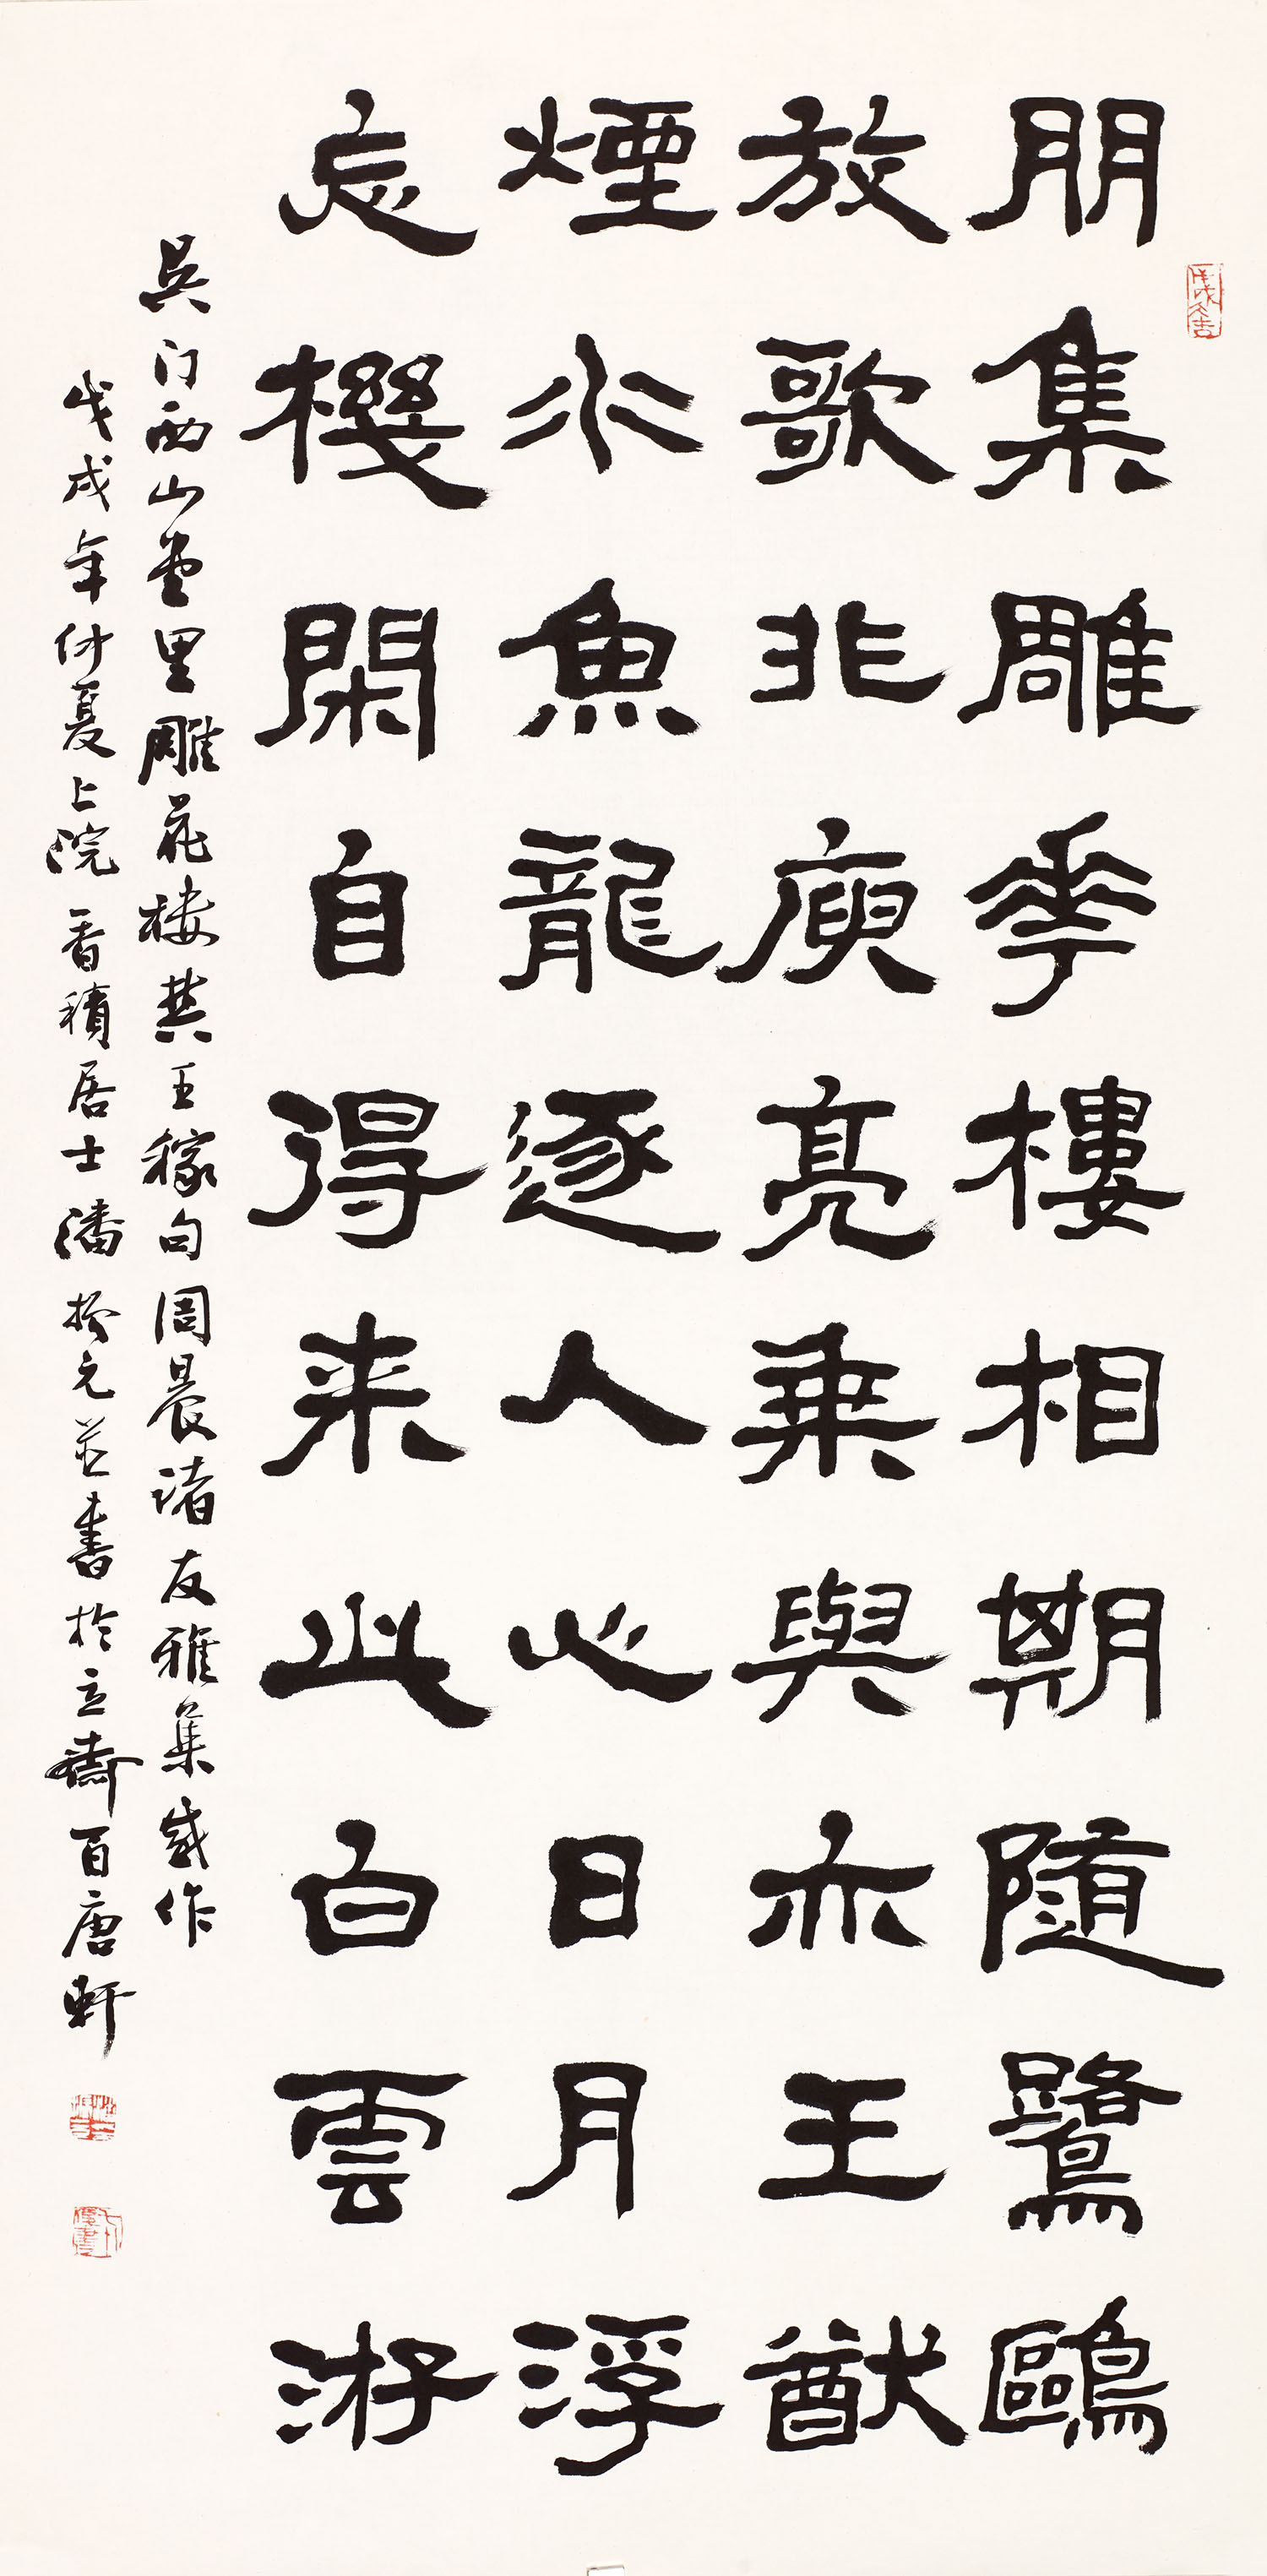 朋集雕華樓相期隨鷺鷗
放歌非庾亮乗與亦王猷
煙水魚龍逐人心日月浮
忘機閑自得来此白雲游
吴门西山堂里雕花楼共王稼句周晨诸友雅集感作
戊戌年仲夏上浣香積居士潘振元並書於立齋百唐軒